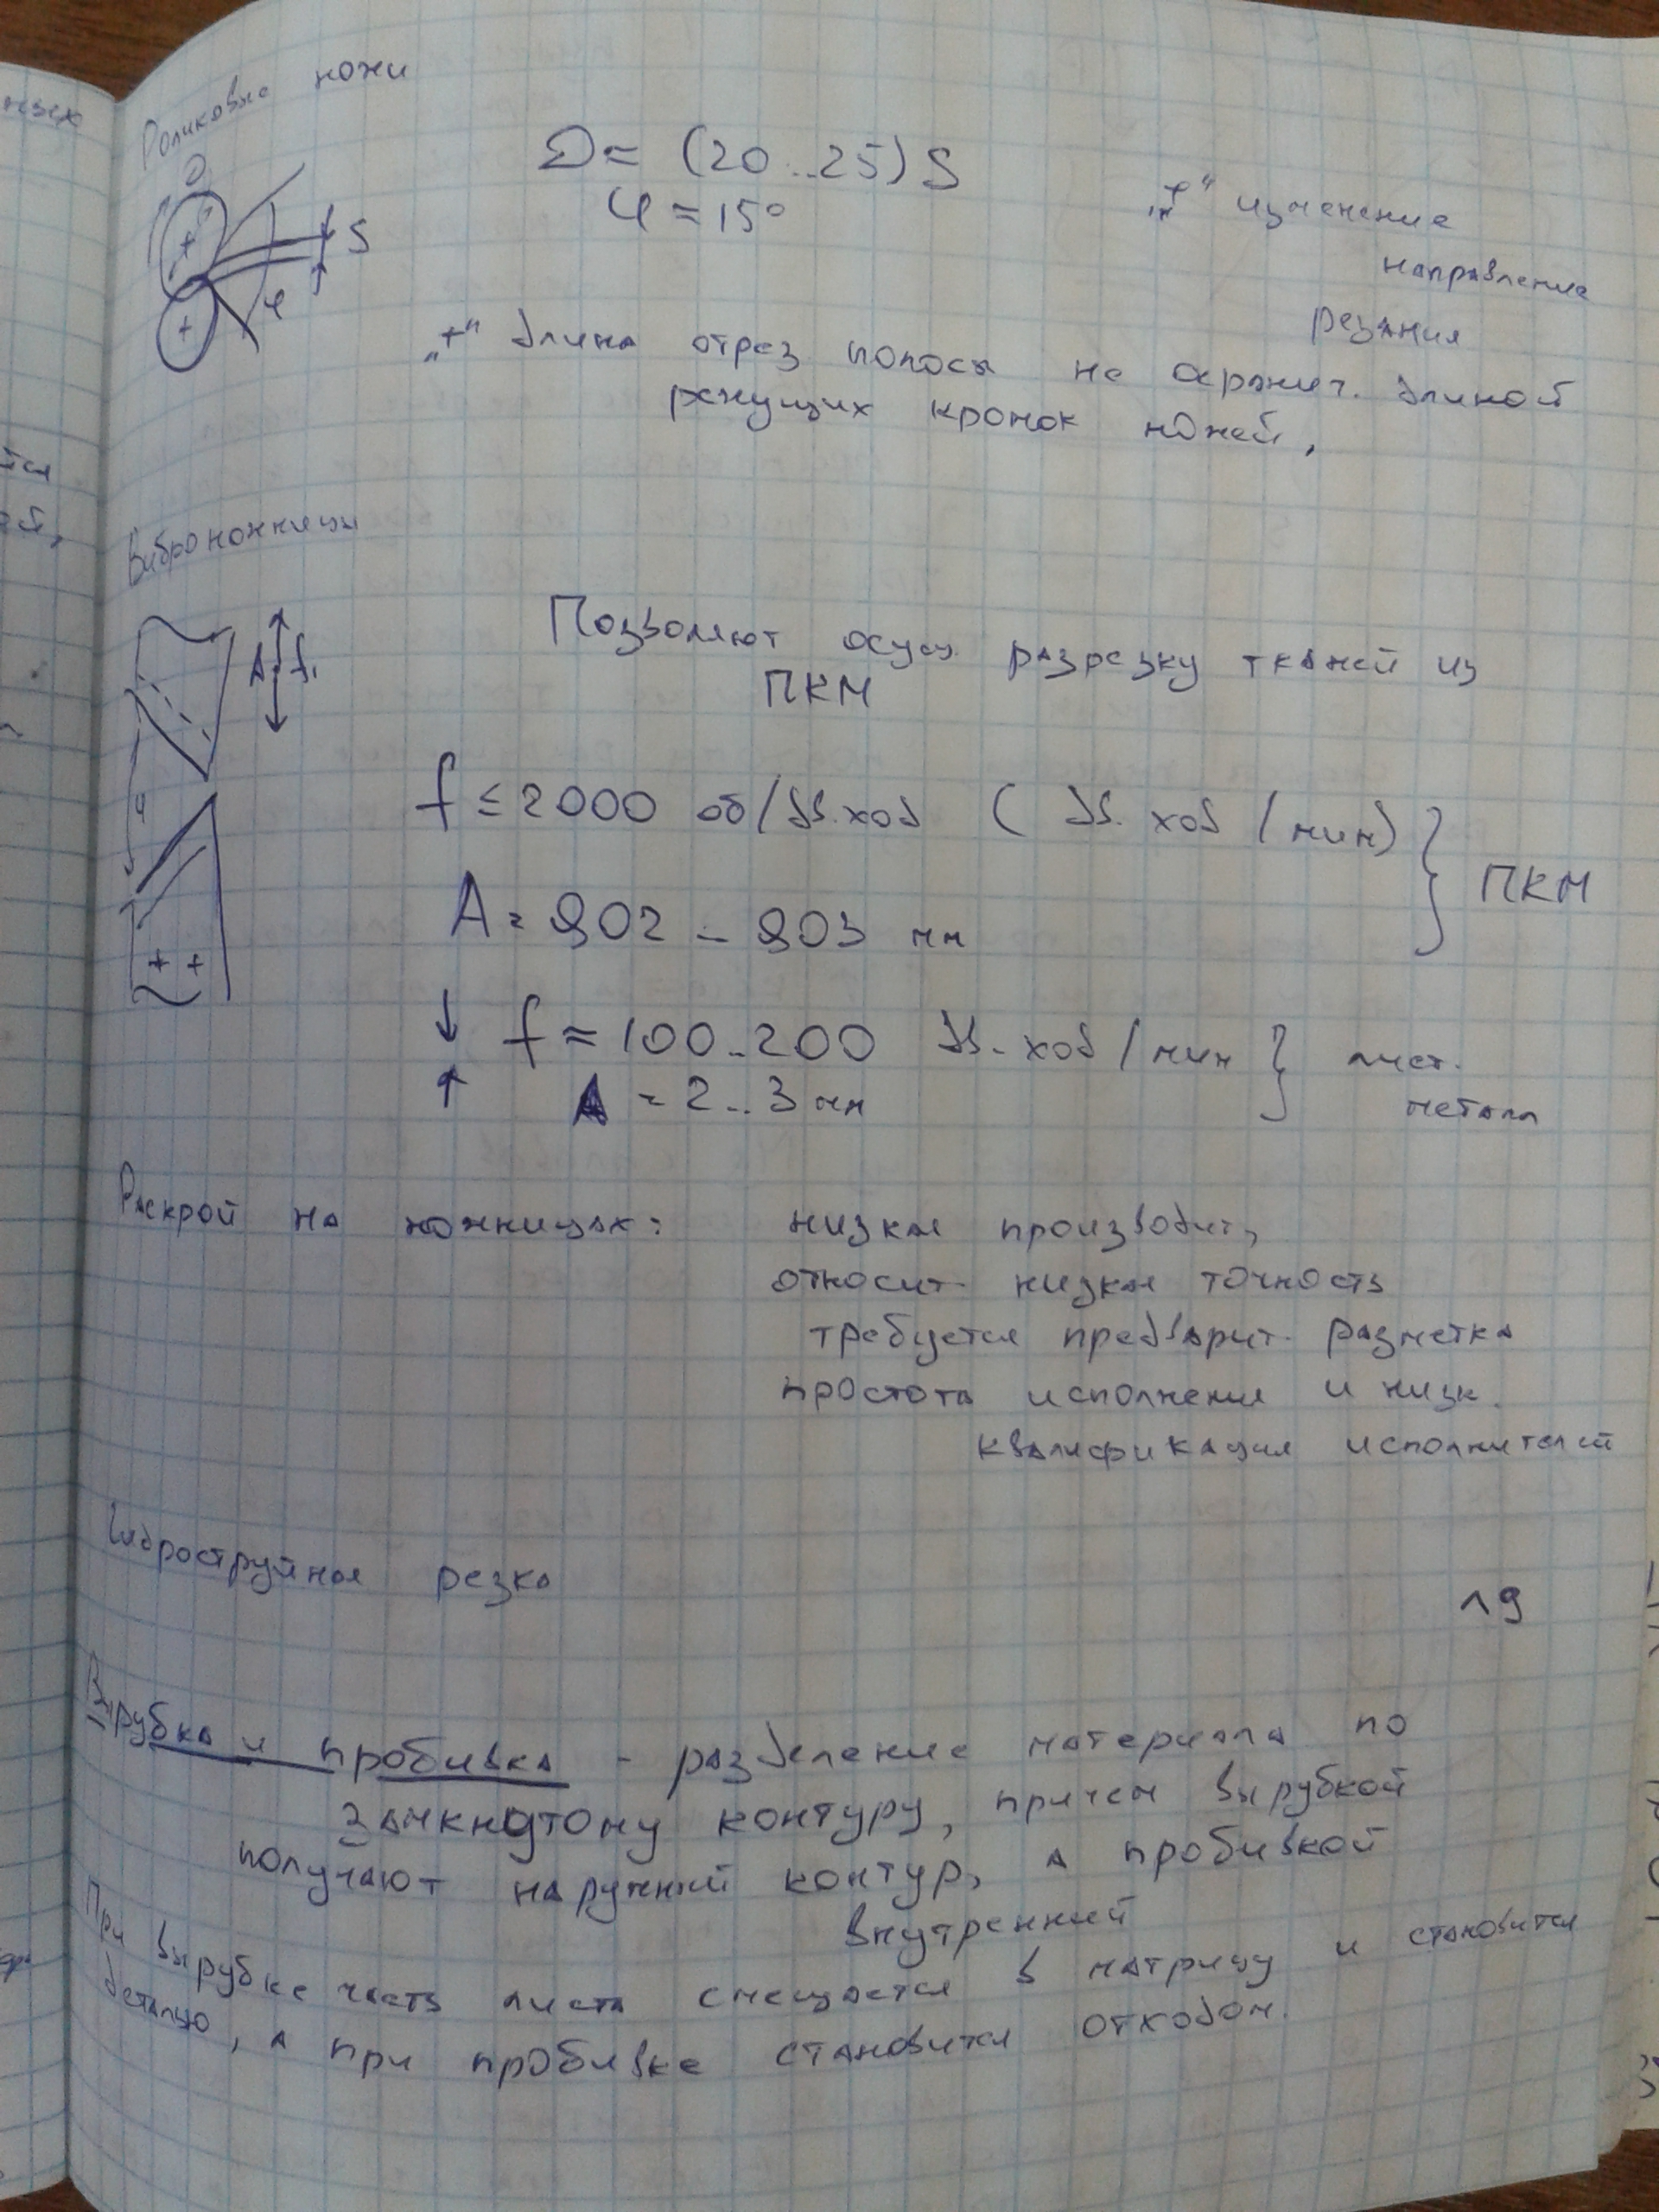 Роликовые ножи
D
S
φ
D = (20..25) S
φ = 15°
„+" изменение
направление
резания
„+" длина отрез полосы не огранич. длиной
режущих кромок ножей,
Виброножницы
A f,
φ
Позволяют осущ. разрезку тканей из
ПКМ
f ≤ 2000 об/дв.ход ( дв. ход /мин)
ПКМ
A = 0,02 - 0,03 мм
f ≈ 100..200 дв. ход/мин } лист.
A = 2..3 мм
метал
Раскрой на ножницах: низкая производит,
относит. низкая точность
требуется предварит. разметка
простота исполнения и низк.
квалификация исполнителей
Гидроструйная резка
л9
Вырубка и пробивка - разделение материала по
замкнутому контуру, причем вырубкой
получают наружный контур, а пробивкой
внутренний
При вырубке часть листа смещается в матрицу и становится
деталью, а при пробивке становится отходом.